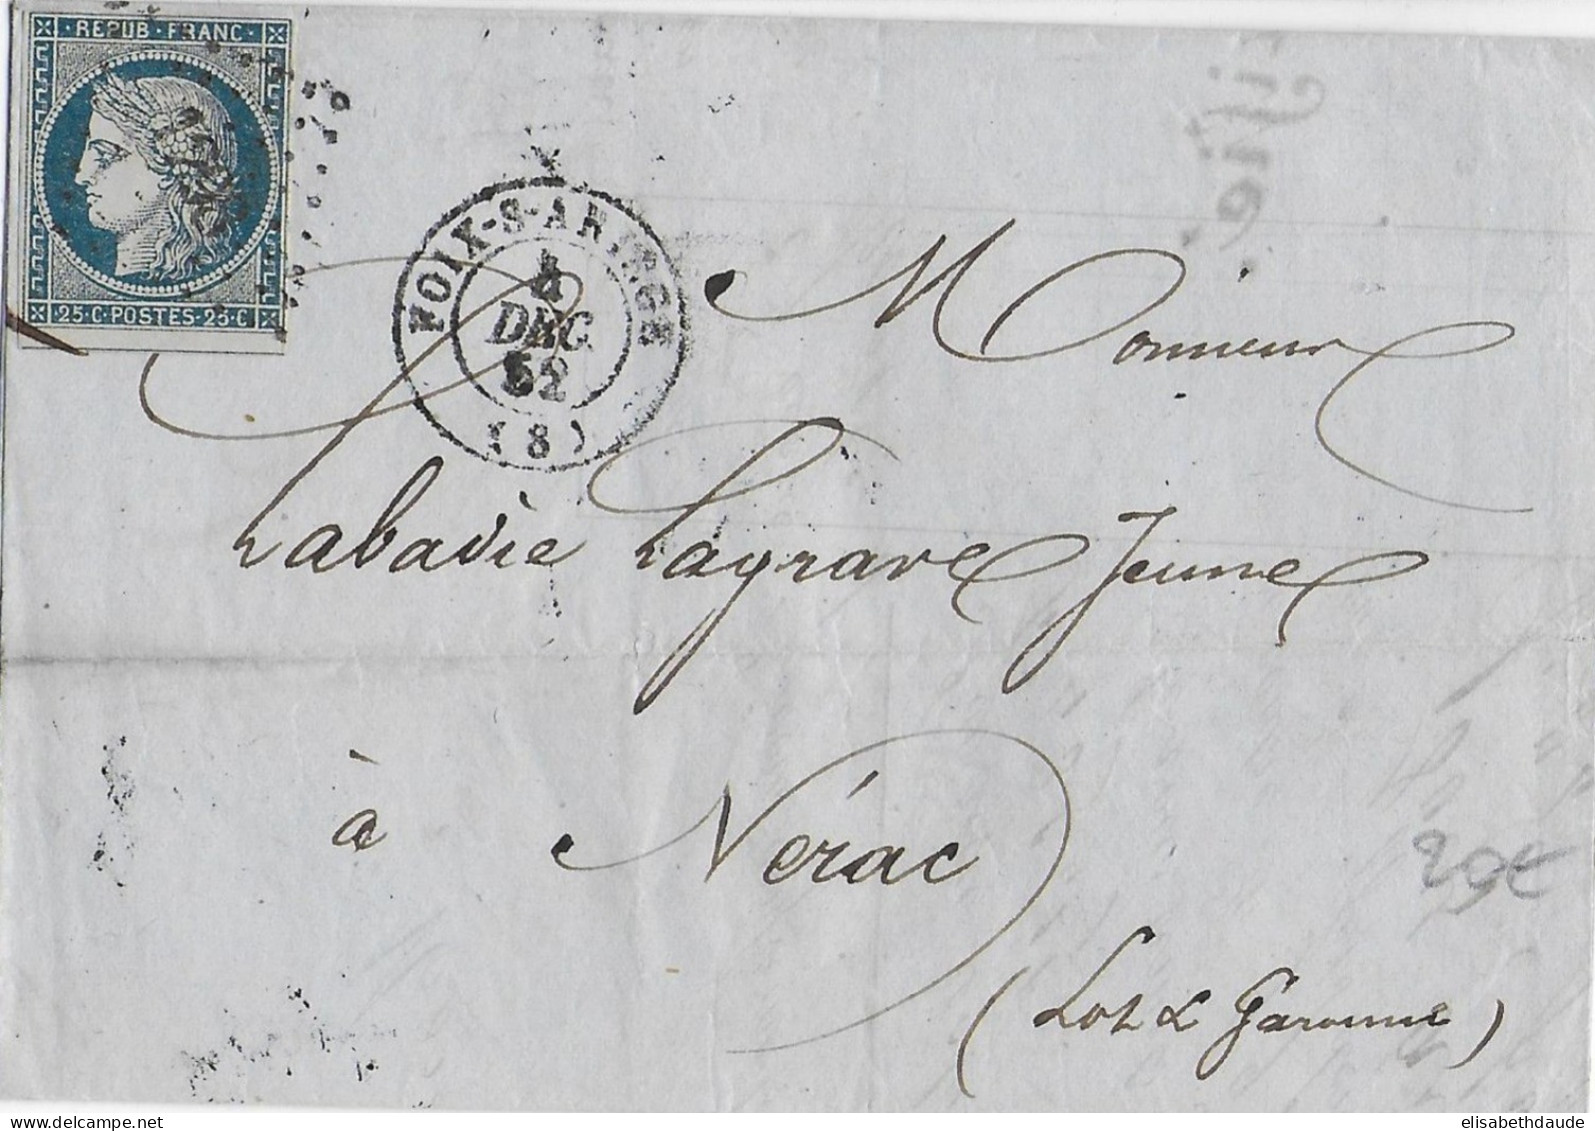 REPUB·FRANC·
·25·C·POSTES·25·C
FOIX-S-ARIEGE
4
DEC.
52
(8)
Monsieur
Labadie Lagrave Jeune
à Nérac
20€
(Lot & Garonne)
elisabethdaude